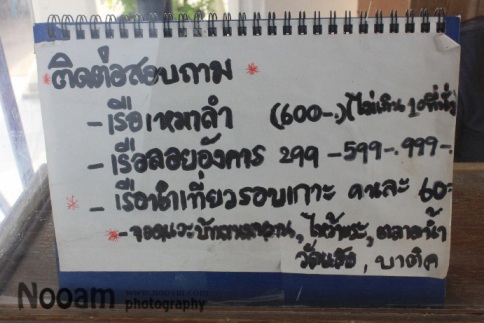 *ติดต่อสอบถาม*
- เรือเหมาลำ (600-.) (ไม่เกิน 10ที่นั่ง)
- เรือลอยอังคาร 299 -599-.999-.
* - เรือนำเที่ยวรอบเกาะ คนละ 60-
*- จอดแวะ ไหว้พระ, ตลาดน้ำ
บาติค
Nooam
photography